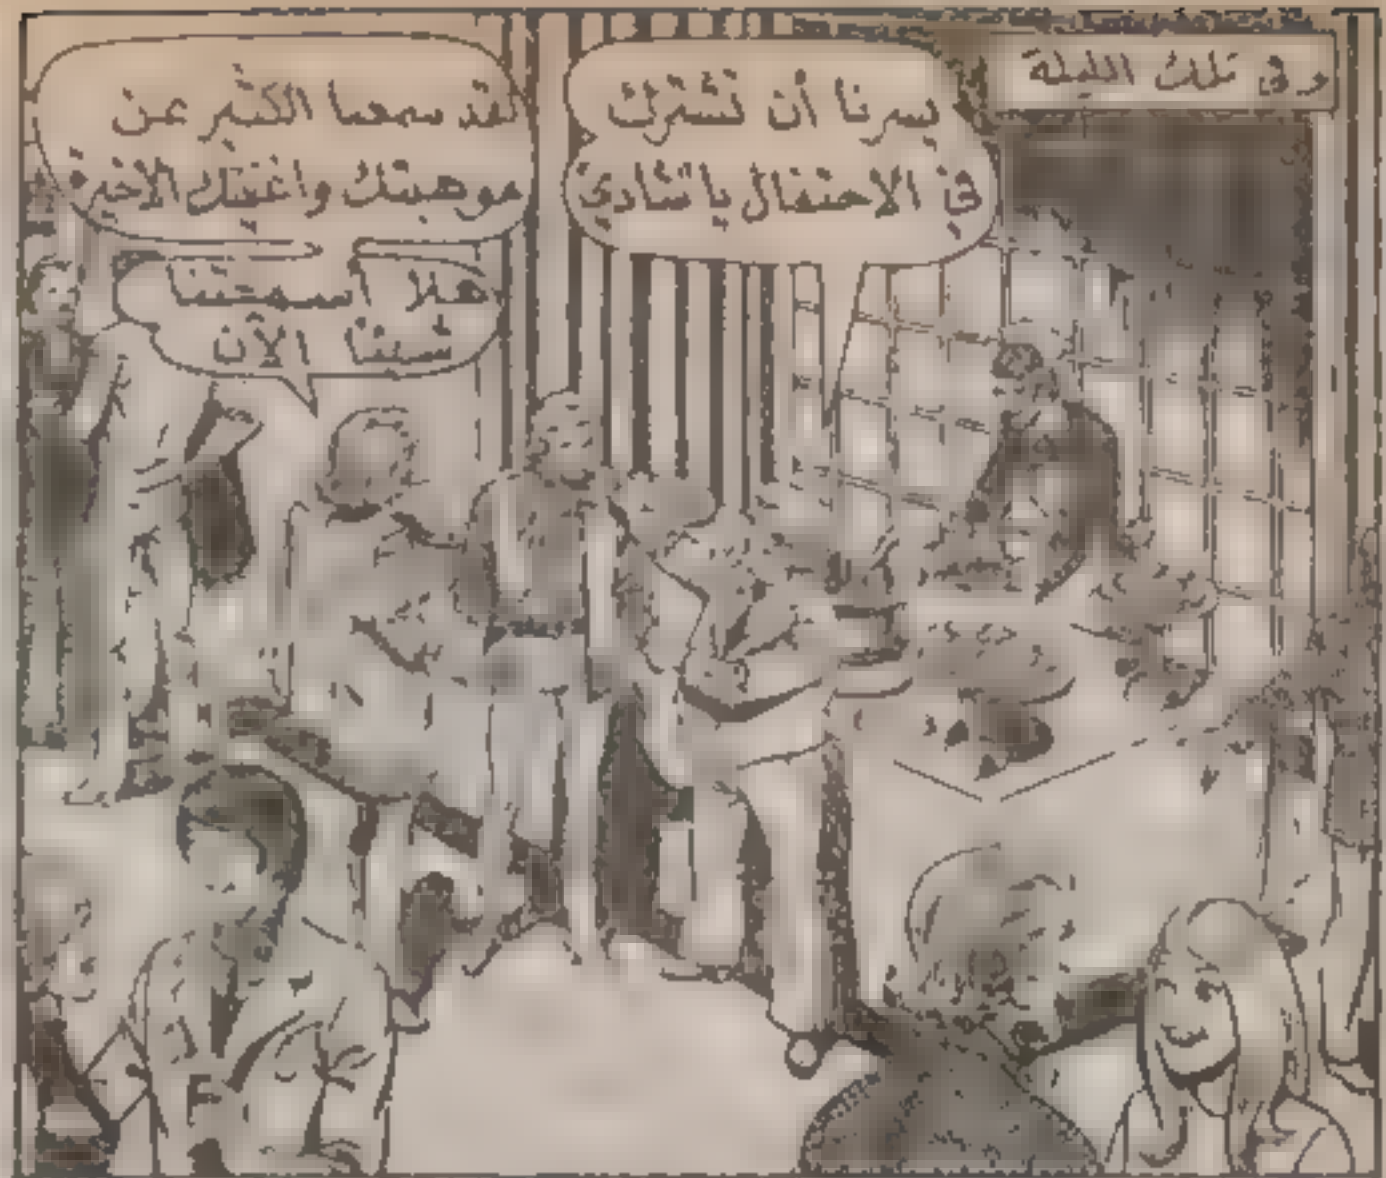 وفى تلك الليلة
يسرنا أن نشترك
فى الاحتفال يا شادى
لقد سمعنا الكثير عن
موهبتك واغنيتك الاخير
هلا أسمعتنا
شيئا الآن